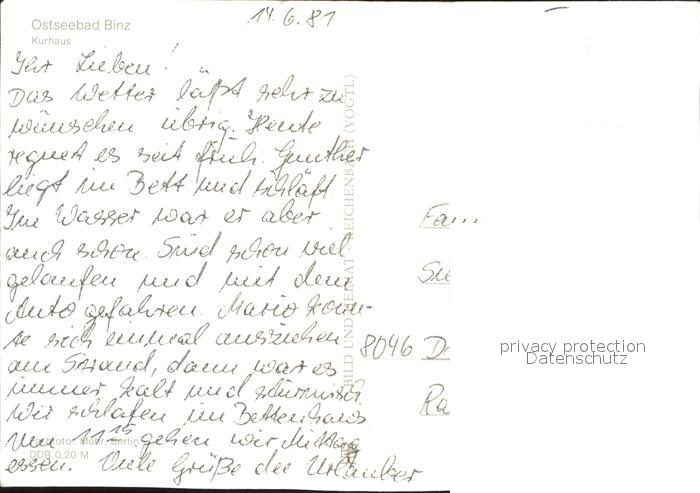 14.6.81
Ostseebad Binz
Kurhaus
Ihr Lieben!
Das Wetter läßt sehr zu
wünschen übrig. Heute
regnet es seit früh. Gunther
liegt im Bett und schläft.
Im Wasser war er aber
auch schon. Sind schon viel
gelaufen und mit dem
Auto gefahren. Mario konn-
te sich einmal ausziehen
am Strand, dann war es
immer kalt und stürmisch
Wir schlafen im Bettenhaus
Um 11 15 gehen wir Mittag
essen. Viele Grüße die Urlauber
Foto: Mohr, Berlin
DDR 0,20 M
BILD UND HEIMAT REICHENBACH (VOGTL)
Fam.
8046
privacy protection
Datenschutz